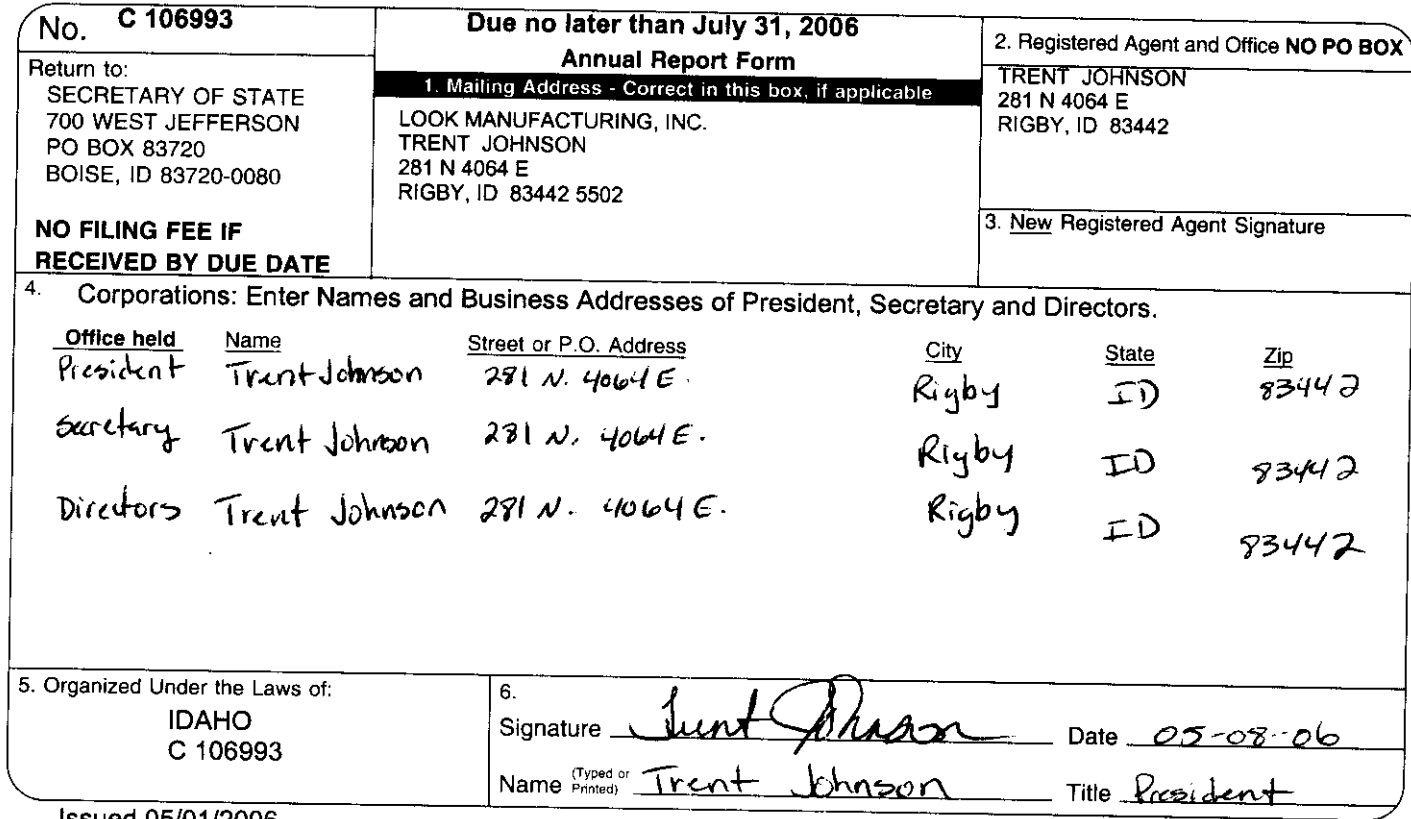 No. C 106993
Return to:
SECRETARY OF STATE
700 WEST JEFFERSON
PO BOX 83720
BOISE, ID 83720-0080
NO FILING FEE IF
RECEIVED BY DUE DATE
Due no later than July 31, 2006
Annual Report Form
1. Mailing Address - Correct in this box, if applicable
LOOK MANUFACTURING, INC.
TRENT JOHNSON
281 N 4064 E
RIGBY, ID 83442 5502
2. Registered Agent and Office NO PO BOX
TRENT JOHNSON
281 N 4064 E
RIGBY, ID 83442
3. New Registered Agent Signature
4. Corporations: Enter Names and Business Addresses of President, Secretary and Directors.
Office held Name Street or P.O. Address City State Zip
President Trent Johnson 281 N. 4064 E. Rigby ID 83442
Secretary Trent Johnson 281 N. 4064 E. Rigby ID 83442
Directors Trent Johnson 281 N. 4064 E. Rigby ID 83442
5. Organized Under the Laws of:
IDAHO
C 106993
6.
Signature Trent Johnson Date 05-08-06
Name (Typed or Printed) Trent Johnson Title President
Issued 05/01/2006